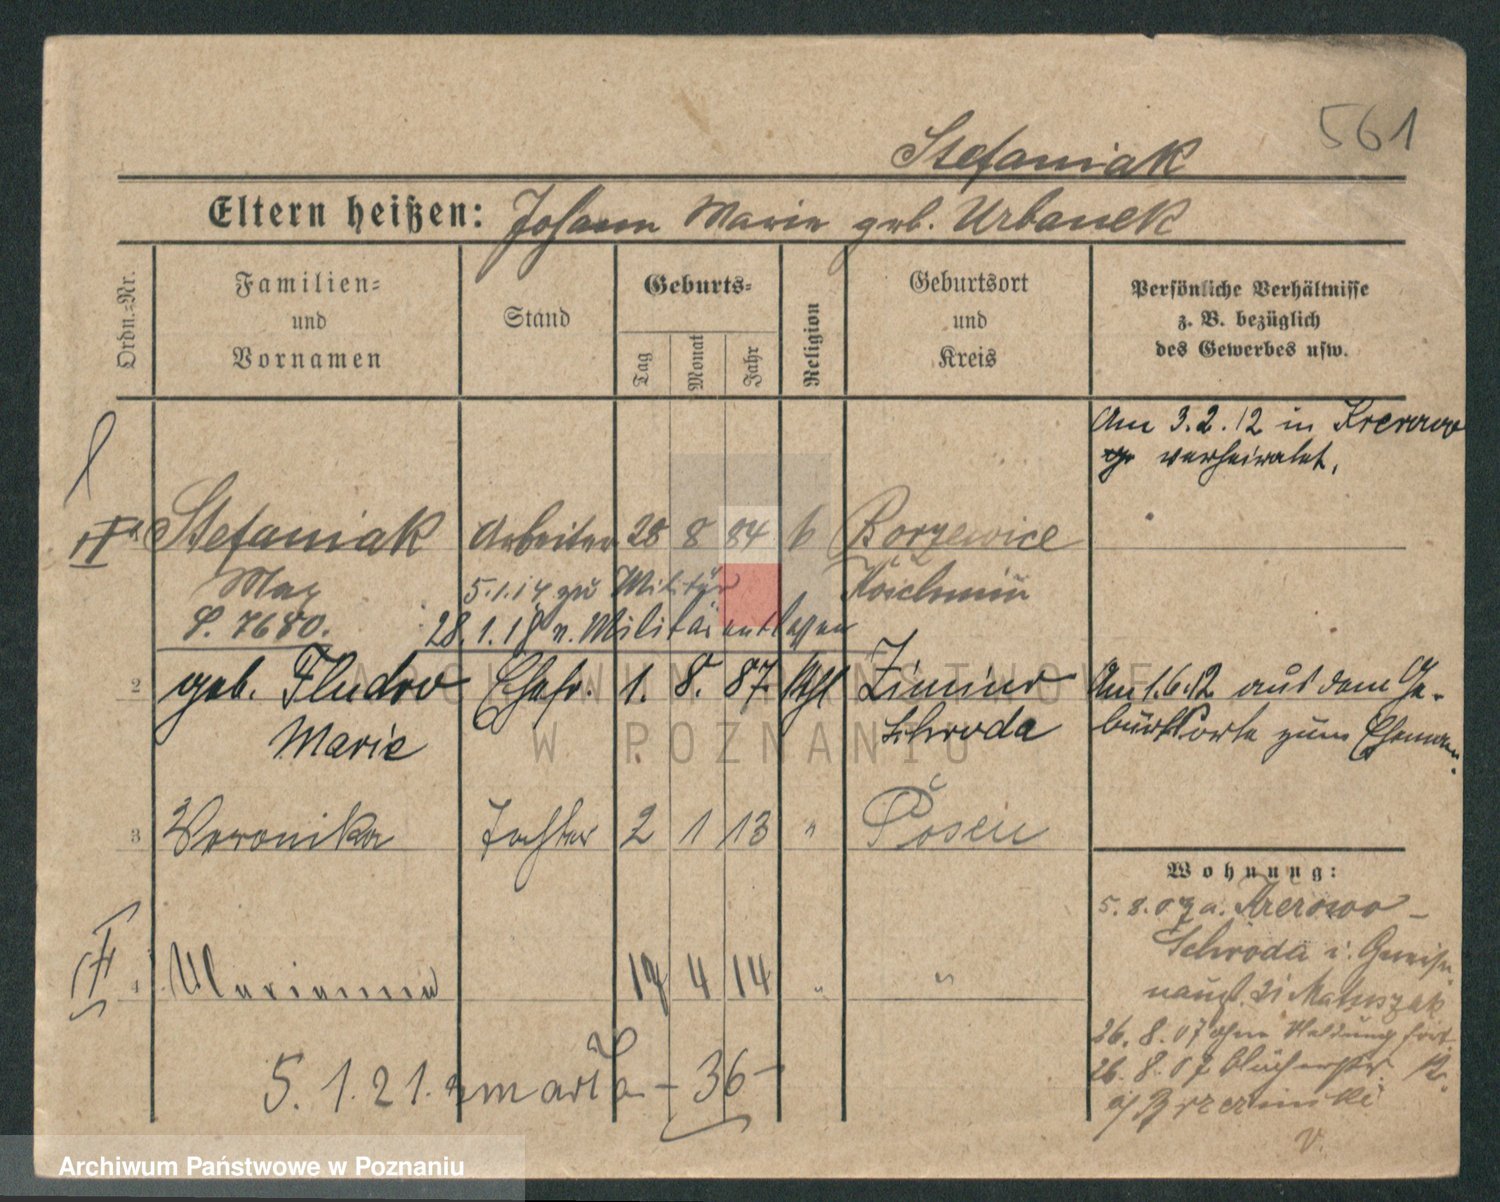 561
Stefaniak
Eltern heißen: Johann Marie geb. Urbanek
Ordn.-Nr.
Familien-
und
Vornamen
Stand
Geburts-
Tag
Monat
Jahr
Religion
Geburtsort
und
Kreis
Persönliche Verhältnisse
z. B. bezüglich
des Gewerbes usw.
Am 3.2.12 in Krerowo
verheiratet.
Stefaniak Arbeiter 28 8 84 k Borzewice
Max 5.1.14 zu Militär Koschmin
P. 7680. 28.1.18 v. Militär entlassen
2 geb. Fludro Ehefr. 1. 8. 87. kth Zimino Am 1.6.12 aus dem Ge-
Marie Schroda burtsorte zum Eheman.
3 Veronika Tochter 2 1 13 " Posen
Wohnung:
5.8.07 a. Krerowo -
Schroda i. Gneise
naust. 21 Matuszak
26.8.07 ohne Meldung fort
26.8.07 Blücherstr
b/
4 Marianna 17 4 14 " "
5.1.21. zmarła - 36 -
V.
ARCHIWUM PAŃSTWOWE
W POZNANIU
Archiwum Państwowe w Poznaniu